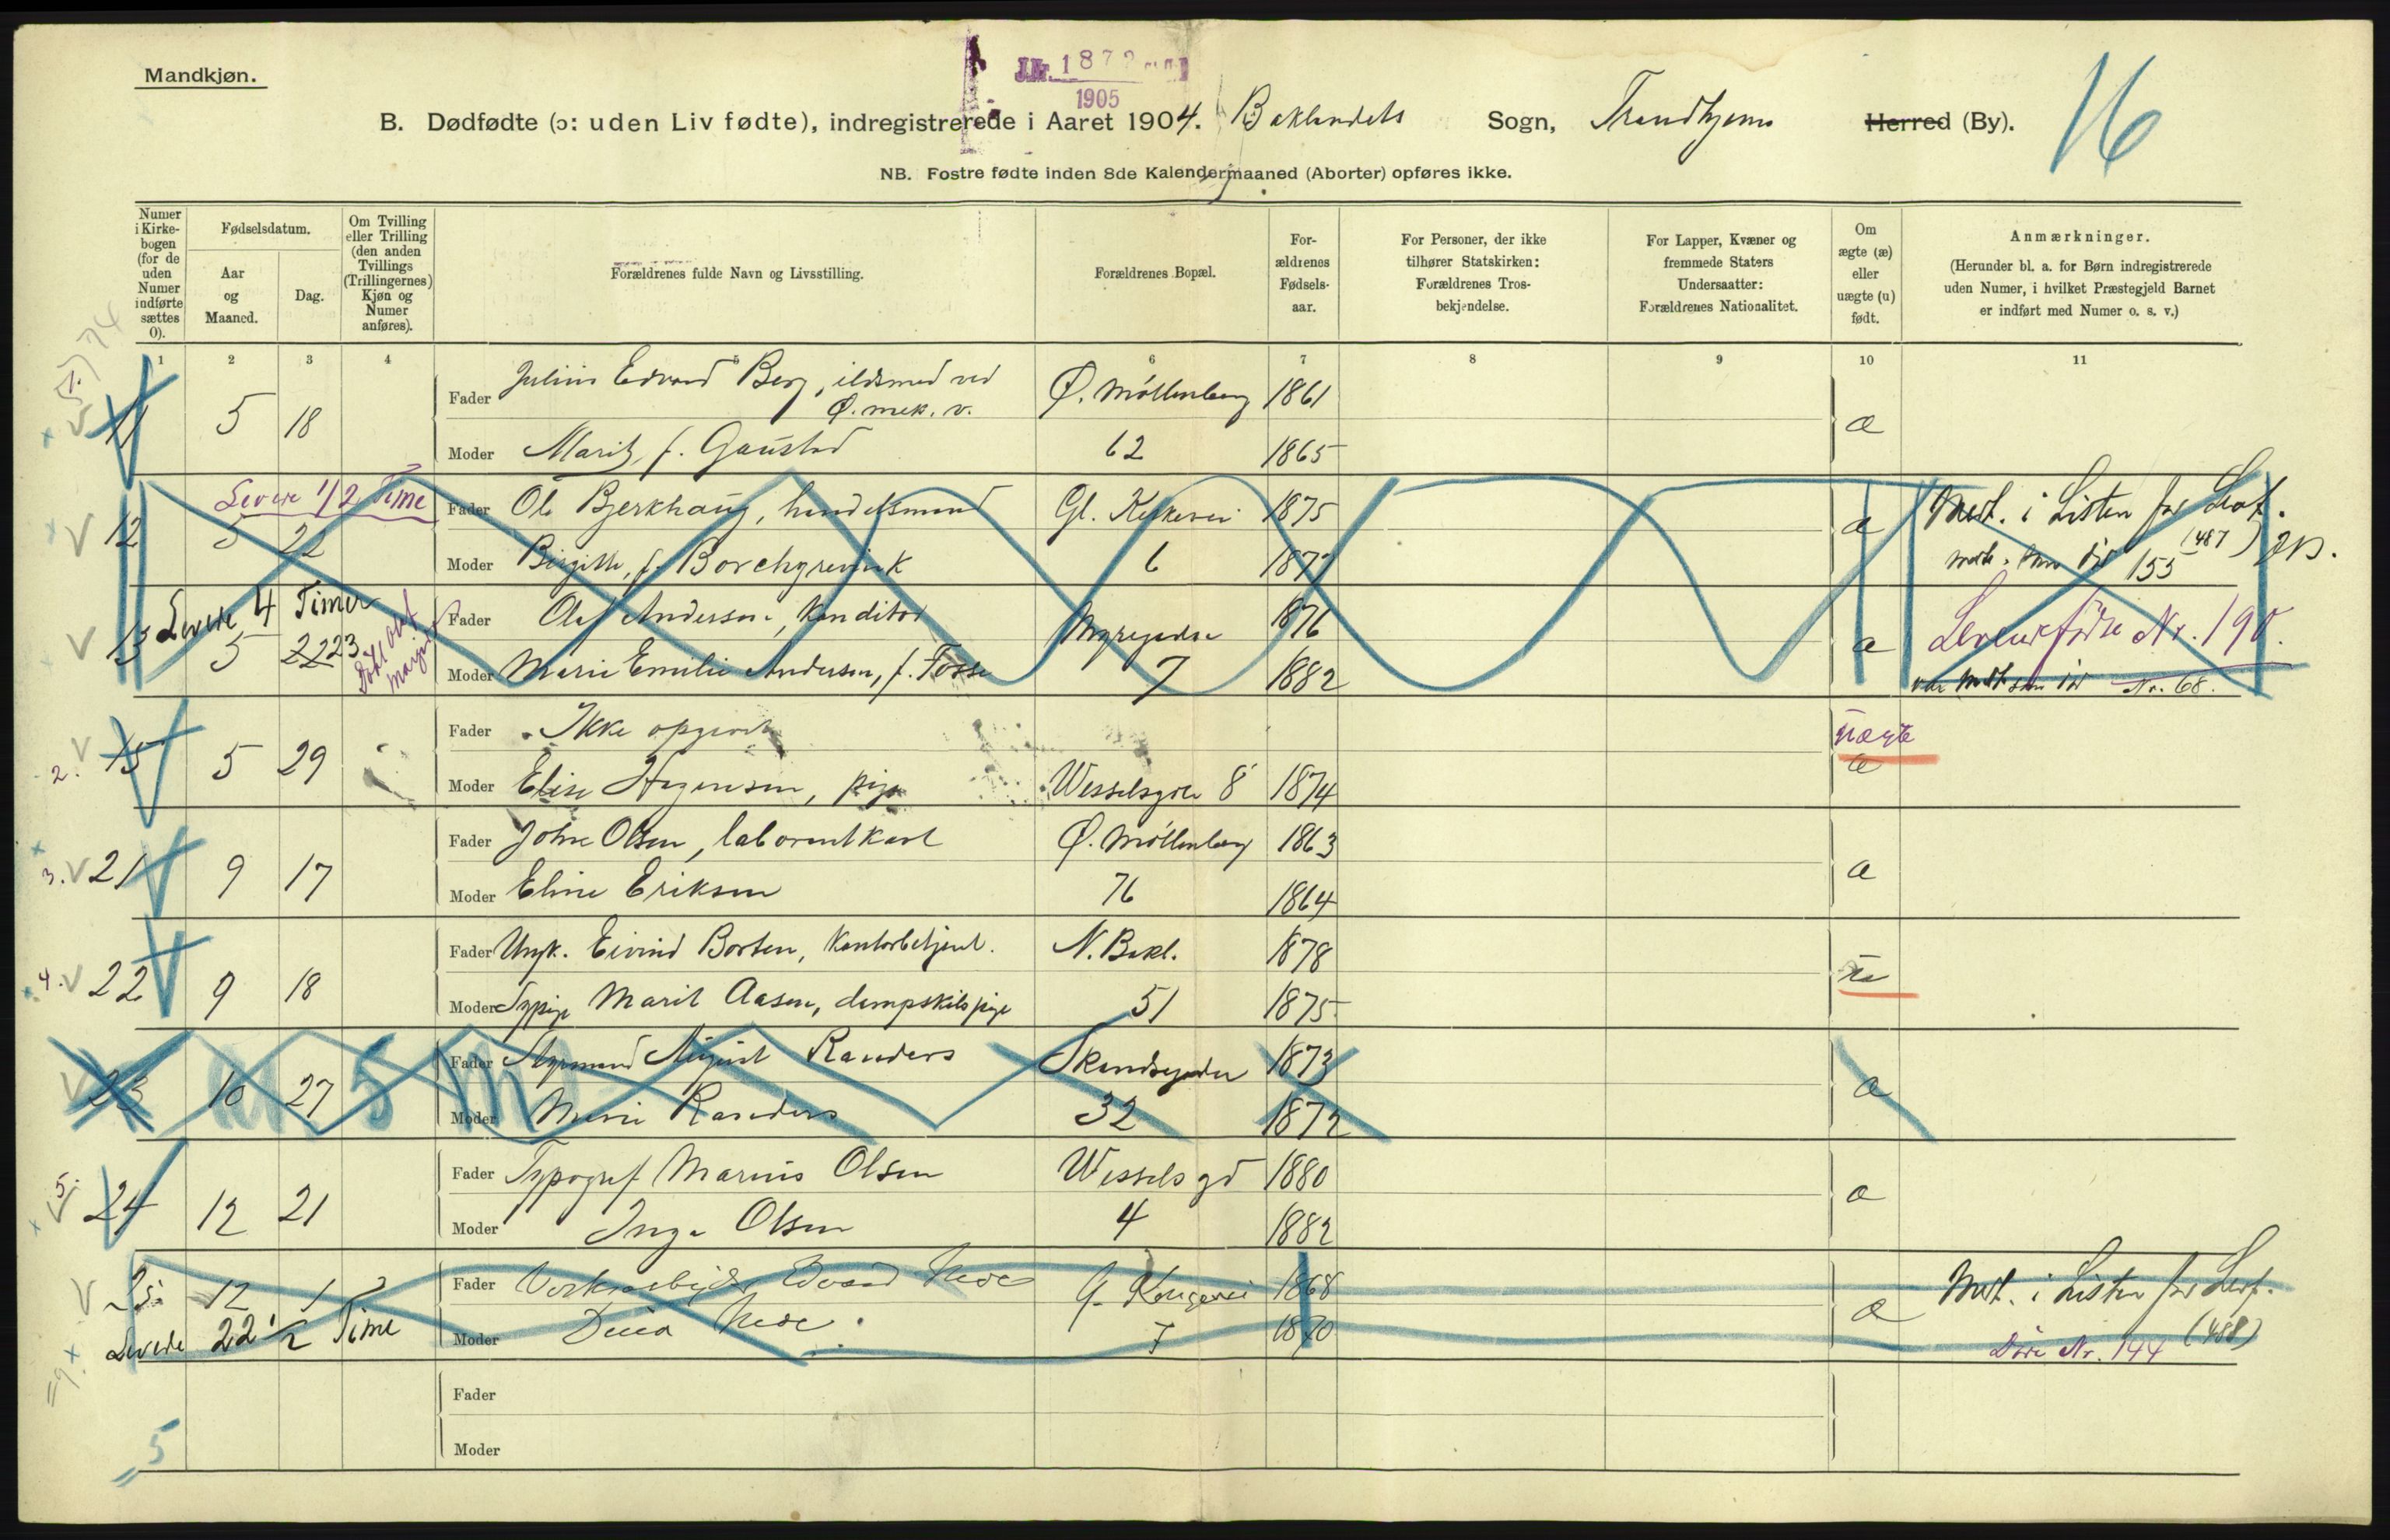 Mandkjøn.
J.Nr. 1872
1905
B. Dødfødte (ɔ: uden Liv fødte), indregistrerede i Aaret 1904. Baklandets Sogn, Trondhjems Herred (By).
16
NB. Fostre fødte inden 8de Kalendermaaned (Aborter) opføres ikke.
Numer i Kirkebogen (for de uden Numer indførte sættes 0).
Fødselsdatum.
Aar og Maaned.
Dag.
Om Tvilling eller Trilling (den anden Tvillings (Trillingernes) Kjøn og Numer anføres).
Forældrenes fulde Navn og Livsstilling.
Forældrenes Bopæl.
Forældrenes Fødselsaar.
For Personer, der ikke tilhører Statskirken: Forældrenes Trosbekjendelse.
For Lapper, Kvæner og fremmede Staters Undersaatter: Forældrenes Nationalitet.
Om ægte (æ) eller uægte (u) født.
Anmærkninger.
(Herunder bl. a. for Børn indregistrerede uden Numer, i hvilket Præstegjeld Barnet er indført med Numer o. s. v.)
1 2 3 4 5 6 7 8 9 10 11
Fader Julius Edvard Berg, ildsmed ved Ø. mek. v. Ø. Möllenberg 1861
11 5 18 æ
Moder Marit, f. Gaustad 62 1865
Levede 1/2 Time
Fader Ole Bjerkhaug, handelsmand Gl. Kirkevei 1875
12 5 22 æ Medt. i Listen for Levf. (487)
Moder Birgitte, f. Borchgrevink 6 1877
155
Levede 4 Timer
Fader Olaf Anderson, Konditor 1876
13 5 22 23 æ Levendefødte Nr. 190.
Moder Marie Emilie Andersen, f. Fosse 7 1882
Nr. 68.
Fader Ikke opgivet
uægte
2. 15 5 29 æ
Moder Elise Hegensen, pige Wesselsgde 8 1874
Fader John Olsen, laborantkarl Ø. Möllenberg 1863
3. 21 9 17 æ
Moder Eline Eriksen 76 1864
Fader Ungk. Eivind Borten, Kontorbetjent. N. Bakl. 1878
4. 22 9 18 u
Moder Sypige Marit Aasen, dampskibspige 51 1875
Fader Styrmand August Randers 1873
23 10 27 æ
Moder Marie Randers 32 1872
Fader Typograf Marius Olsen Wesselsgd 1880
5. 24 12 21 æ
Moder Inga Olsen 4 1882
Fader Edvard Kongevei 1868
25 12 1 æ Medt. i Listen for Levf. (488)
Levede 22 1/2 Time
Moder 7 1870
Døde Nr. 144
Fader
Moder
= 5